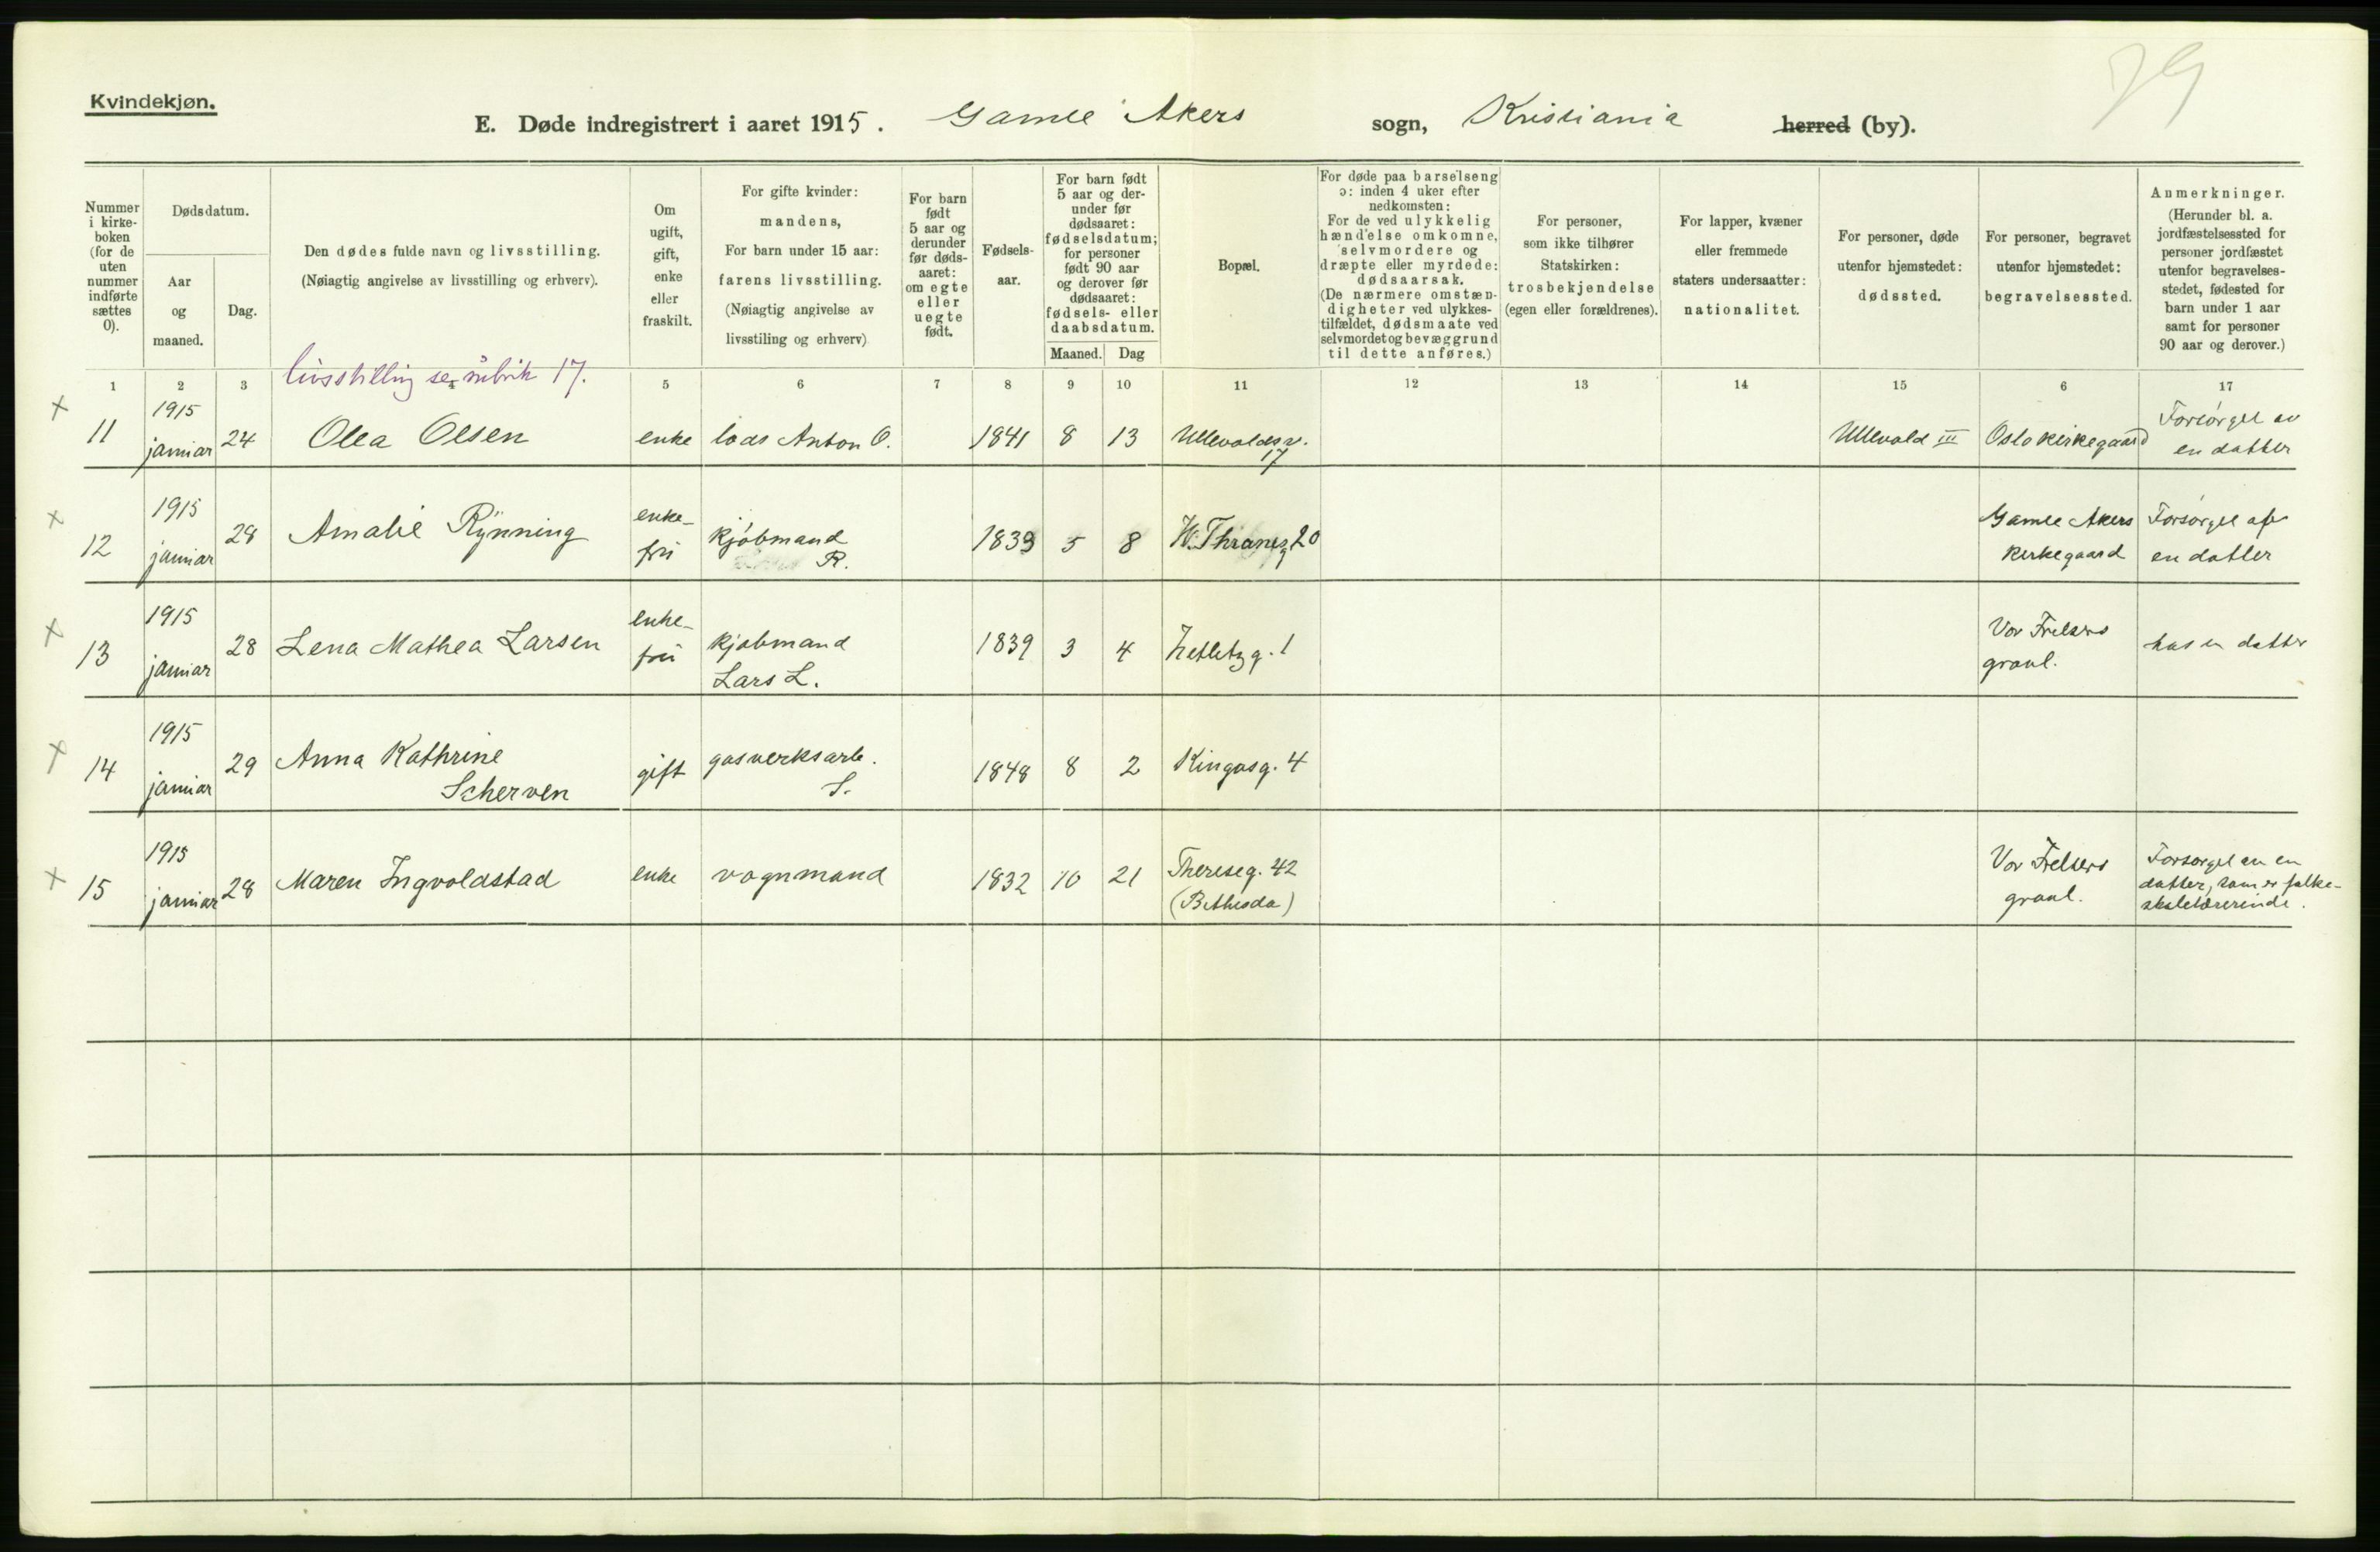 79
Kvindekjøn.
E. Døde indregistrert i aaret 1915. Gamle Akers sogn, Kristiania herred (by).
Nummer i kirke-boken (for de uten nummer indførte sættes 0).
Dødsdatum.
Aar og maaned.
Dag.
Den dødes fulde navn og livsstilling.
(Nøiagtig angivelse av livsstilling og erhverv).
livsstilling se rubrik 17.
Om ugift, gift, enke eller fraskilt.
For gifte kvinder: mandens,
For barn under 15 aar: farens livsstilling.
(Nøiagtig angivelse av livsstiling og erhverv)
For barn født 5 aar og derunder før døds-aaret: om egte eller uegte født.
Fødsels-aar.
For barn født 5 aar og der-under før dødsaaret: fødselsdatum; for personer født 90 aar og derover før dødsaaret: fødsels- eller daabsdatum.
Maaned. Dag
Bopæl.
For døde paa barselseng ɔ: inden 4 uker efter nedkomsten: For de ved ulykkelig hændelse omkomne, selvmordere og dræpte eller myrdede: dødsaarsak. (De nærmere omstæn-digheter ved ulykkes-tilfældet, dødsmaate ved selvmordet og bevæggrund til dette anføres.)
For personer, som ikke tilhører Statskirken: trosbekjendelse (egen eller forældrenes).
For lapper, kvæner eller fremmede staters undersaatter: nationalitet.
For personer, døde utenfor hjemstedet: dødssted.
For personer, begravet utenfor hjemstedet: begravelsessted.
Anmerkninger. (Herunder bl. a. jordfæstelsessted for personer jordfæstet utenfor begravelses-stedet, fødested for barn under 1 aar samt for personer 90 aar og derover.)
1 2 3 4 5 6 7 8 9 10 11 12 13 14 15 6 17
x 11 1915 januar 24 Olea Olsen enke lods Anton O. 1841 8 13 Ullevoldsv. 17 Ullevold III Oslo kirkegaard Forsørget av en datter
x 12 1915 januar 28 Amalie Rynning enke-fru kjøbmand R. 1839 5 8 W. Thranesg 20 Gamle Akers kirkegaard Forsørget af en datter
x 13 1915 januar 28 Lena Mathea Larsen enke-fru kjøbmand Lars L. 1839 3 4 1 Vor Frelsers gravl. has en datter
x 14 1915 januar 29 Anna Kathrine Scherven gift gasverksarb. S. 1848 8 2 Kingosg. 4
x 15 1915 januar 28 Maren Ingvoldstad enke vognmand 1832 10 21 Thereseg. 42 (Bethesda) Vor Frelsers gravl. Forsørget av en datter, som er folke-skolelærerinde.